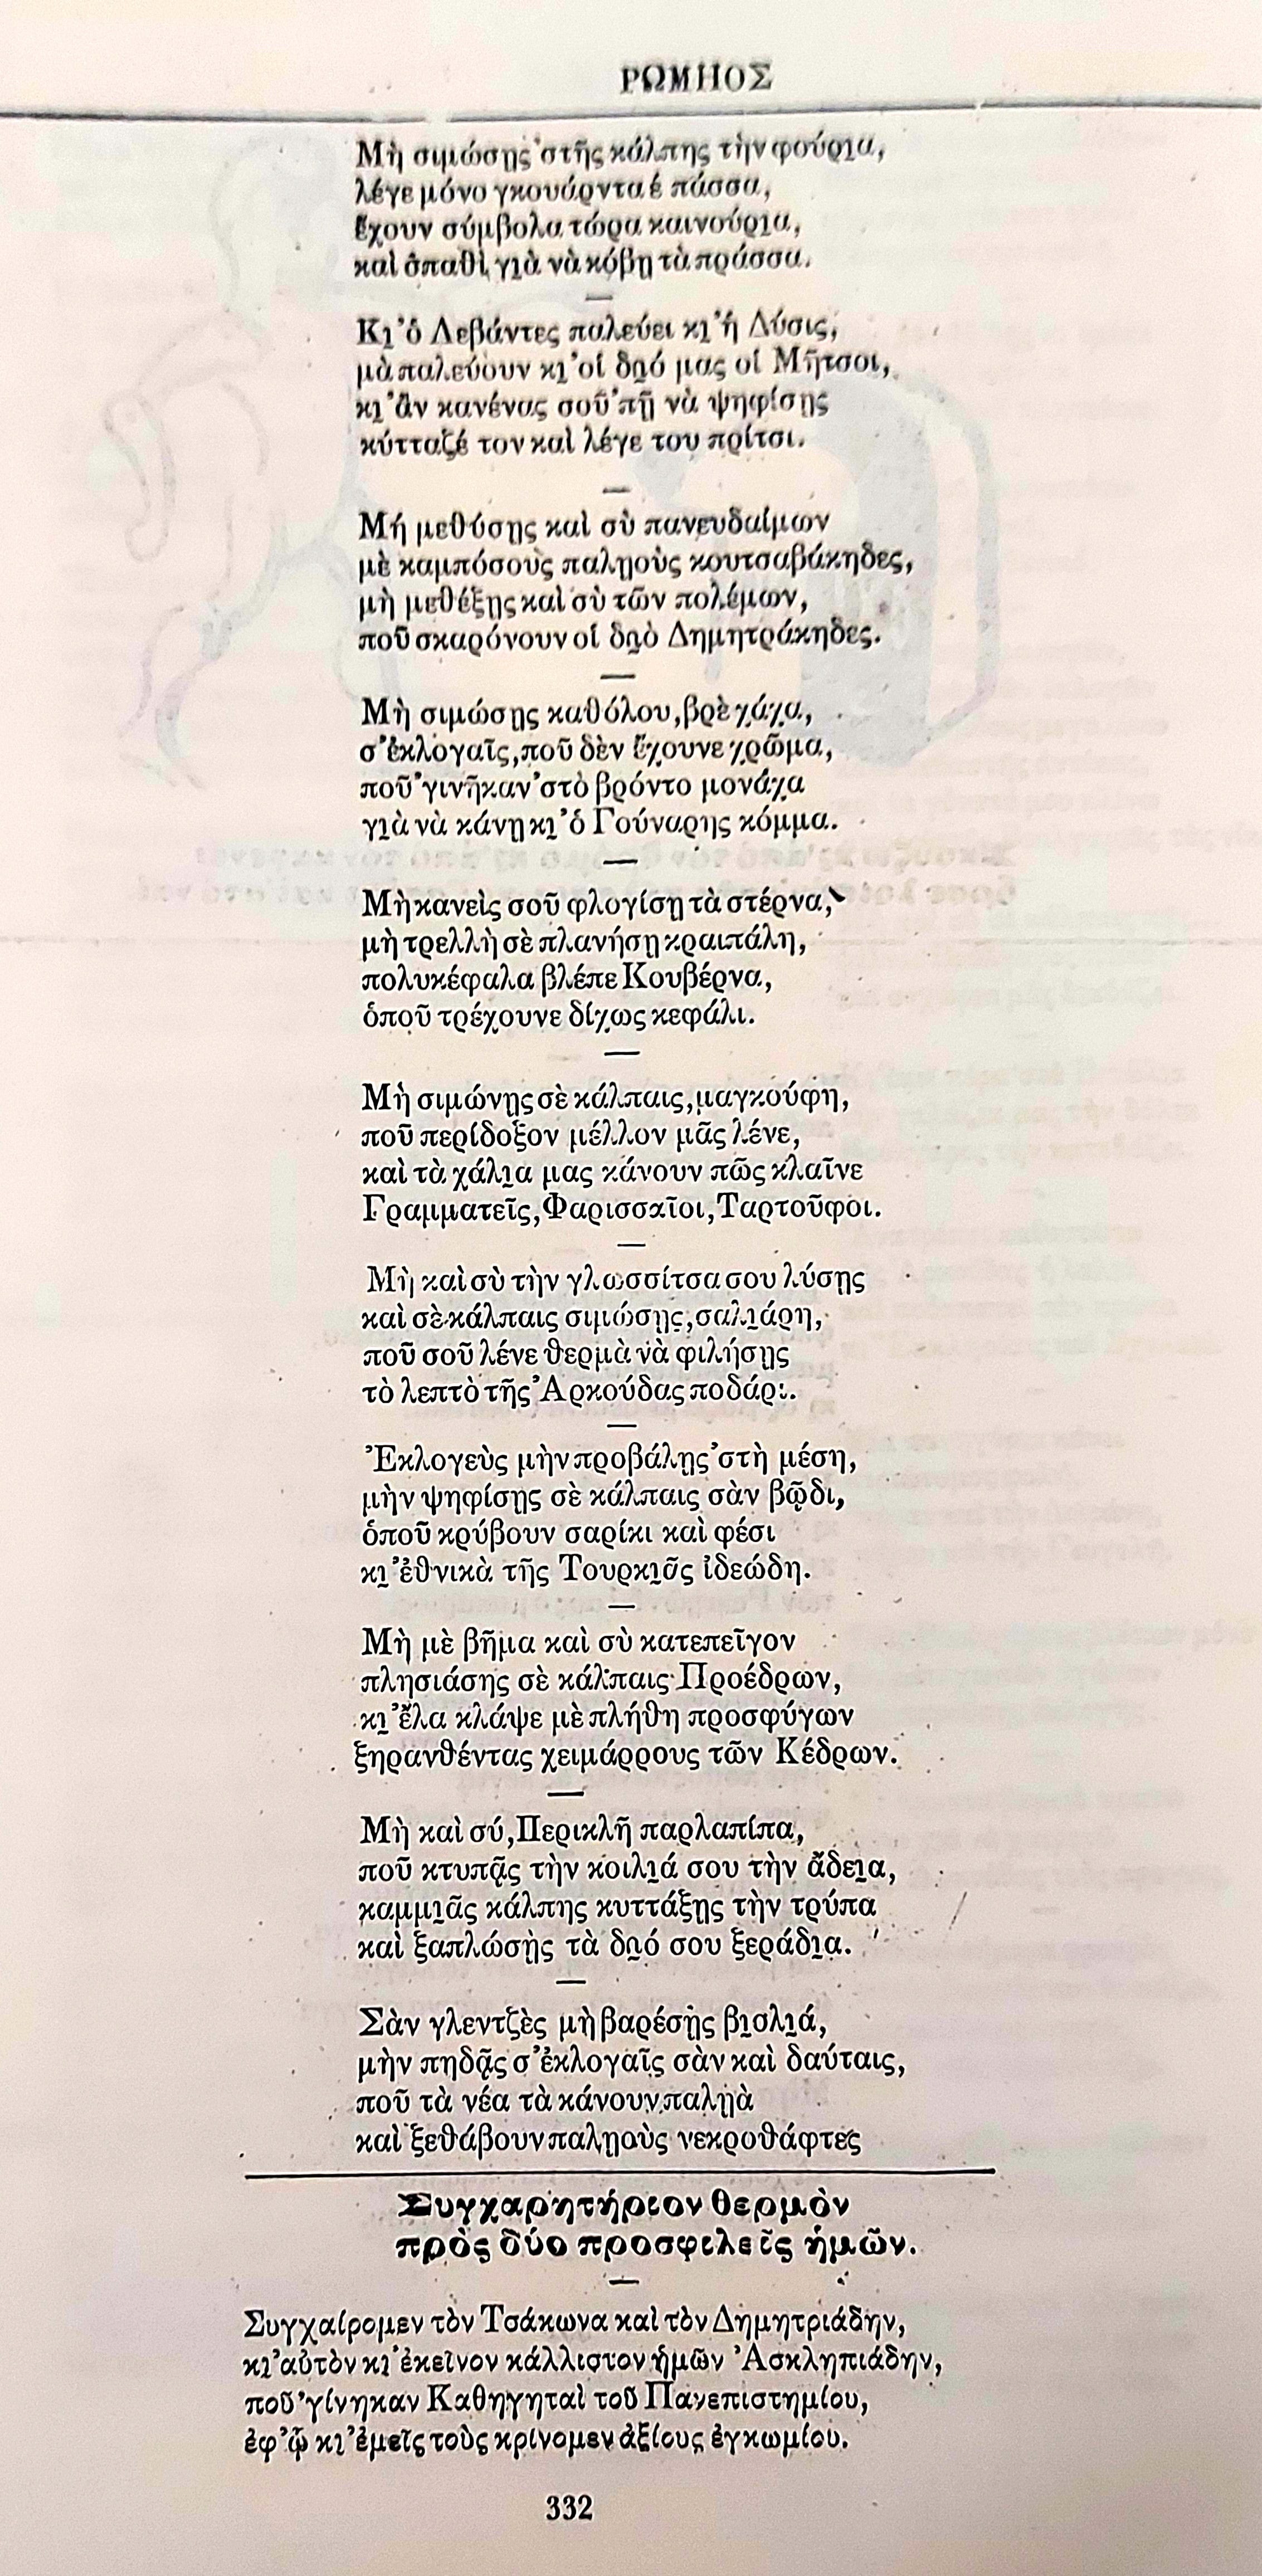 ΡΩΜΗΟΣ
Μὴ σιμώσῃς 'στῆς κάλπης τὴν φούρια,
λέγε μόνο γκουάρντα ἐ πάσσα,
ἔχουν σύμβολα τώρα καινούρια,
καὶ σπαθὶ γιὰ νὰ κόβῃ τὰ πράσσα.
—
Κι' ὁ Λεβάντες παλεύει κι' ἡ Δύσις,
μὰ παλεύουν κι' οἱ δυό μας οἱ Μῆτσοι,
κι' ἂν κανένας σοῦ 'πῇ νὰ ψηφίσῃς
κύτταζέ τον καὶ λέγε του πρίτσι.
—
Μή μεθύσῃς καὶ σὺ πανευδαίμων
μὲ καμπόσους παληοὺς κουτσαβάκηδες,
μὴ μεθέξῃς καὶ σὺ τῶν πολέμων,
ποῦ σκαρόνουν οἱ δυὸ Δημητράκηδες.
—
Μὴ σιμώσῃς καθόλου, βρὲ χάχα,
σ' ἐκλογαῖς, ποῦ δὲν ἔχουνε χρῶμα,
ποῦ 'γινῆκαν 'στὸ βρόντο μονάχα
γιὰ νὰ κάνῃ κι' ὁ Γούναρης κόμμα.
—
Μὴ κανεὶς σοῦ φλογίσῃ τὰ στέρνα,
μὴ τρελλὴ σὲ πλανήσῃ κραιπάλη,
πολυκέφαλα βλέπε Κουβέρνα,
ὁποῦ τρέχουνε δίχως κεφάλι.
—
Μὴ σιμώνῃς σὲ κάλπαις, μαγκούφη,
ποῦ περίδοξον μέλλον μᾶς λένε,
καὶ τὰ χάλια μας κάνουν πῶς κλαῖνε
Γραμματεῖς, Φαρισσαῖοι, Ταρτοῦφοι.
—
Μὴ καὶ σὺ τὴν γλωσσίτσα σου λύσῃς
καὶ σὲ κάλπαις σιμώσῃς, σαλιάρη,
ποῦ σοῦ λένε θερμὰ νὰ φιλήσῃς
τὸ λεπτὸ τῆς Ἀρκούδας ποδάρι.
—
Ἐκλογεὺς μὴν προβάλῃς 'στὴ μέση,
μὴν ψηφίσῃς σὲ κάλπαις σὰν βῷδι,
ὁποῦ κρύβουν σαρίκι καὶ φέσι
κι' ἐθνικὰ τῆς Τουρκιᾶς ἰδεώδη.
—
Μὴ μὲ βῆμα καὶ σὺ κατεπεῖγον
πλησιάσῃς σὲ κάλπαις Προέδρων,
κι' ἔλα κλάψε μὲ πλήθη προσφύγων
ξηρανθέντας χειμάρρους τῶν Κέδρων.
—
Μὴ καὶ σύ, Περικλῆ παρλαπίπα,
ποῦ κτυπᾷς τὴν κοιλιά σου τὴν ἄδεια,
καμμιᾶς κάλπης κυττάξῃς τὴν τρύπα
καὶ ξαπλώσῃς τὰ δυό σου ξεράδια.
—
Σὰν γλεντζὲς μὴ βαρέσῃς βιολιά,
μὴν πηδᾷς σ' ἐκλογαῖς σὰν καὶ δαύταις,
ποῦ τὰ νέα τὰ κάνουν παληὰ
καὶ ξεθάβουν παληοὺς νεκροθάφτες
Συγχαρητήριον θερμὸν
πρὸς δύο προσφιλεῖς ἡμῶν.
—
Συγχαίρομεν τὸν Τσάκωνα καὶ τὸν Δημητριάδην,
κι' αὐτὸν κι' ἐκεῖνον κάλλιστον ἡμῶν Ἀσκληπιάδην,
ποῦ 'γίνηκαν Καθηγηταὶ τοῦ Πανεπιστημίου,
ἐφ' ᾧ κι' ἐμεῖς τοὺς κρίνομεν ἀξίους ἐγκωμίου.
332